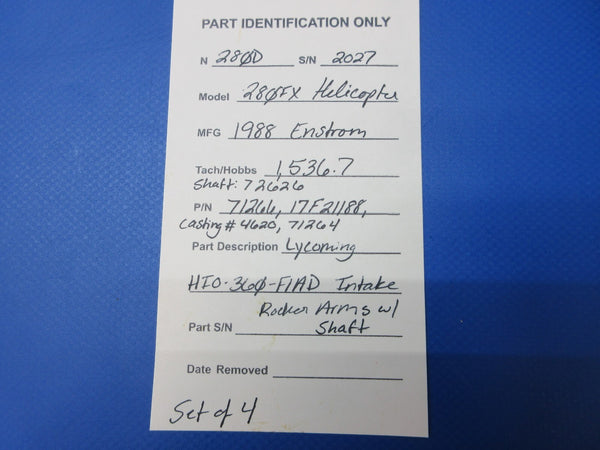 PART IDENTIFICATION ONLY
N 280D S/N 2027
Model 280FX Helicopter
MFG 1988 Enstrom
Tach/Hobbs 1,536.7
Shaft: 72626
P/N 71266, 17F21188,
Casting # 4620, 71264
Part Description Lycoming
HIO-360-F1AD Intake
Rocker Arms w/
Part S/N Shaft
Date Removed
Set of 4